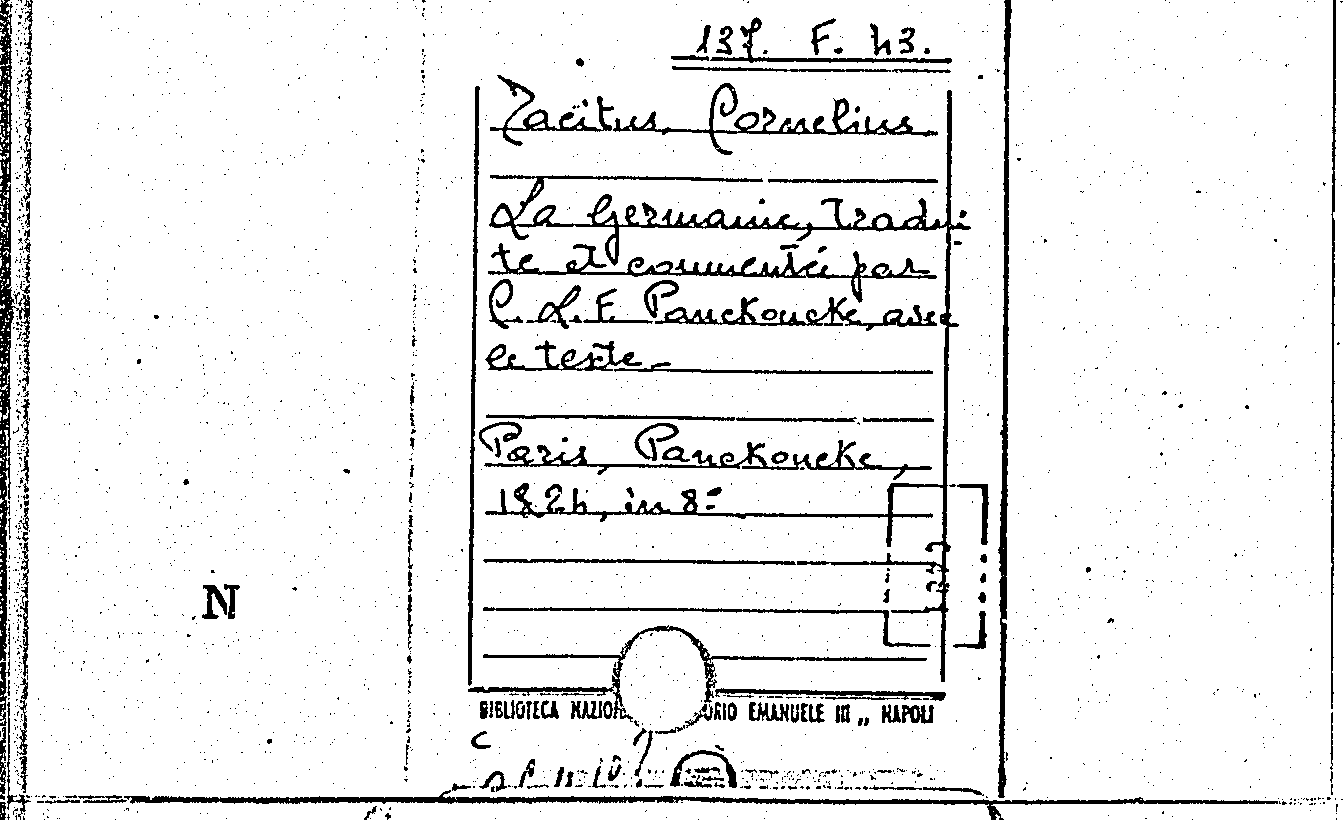 137. F. 43.
Tacitus, Cornelius
La Germanie, tradui
te et commentée par
C. L. F. Panckoucke, avec
le texte -
Paris, Panckoucke,
1824, in 8°
N
BIBLIOTECA NAZION ORIO EMANUELE III „ NAPOLI